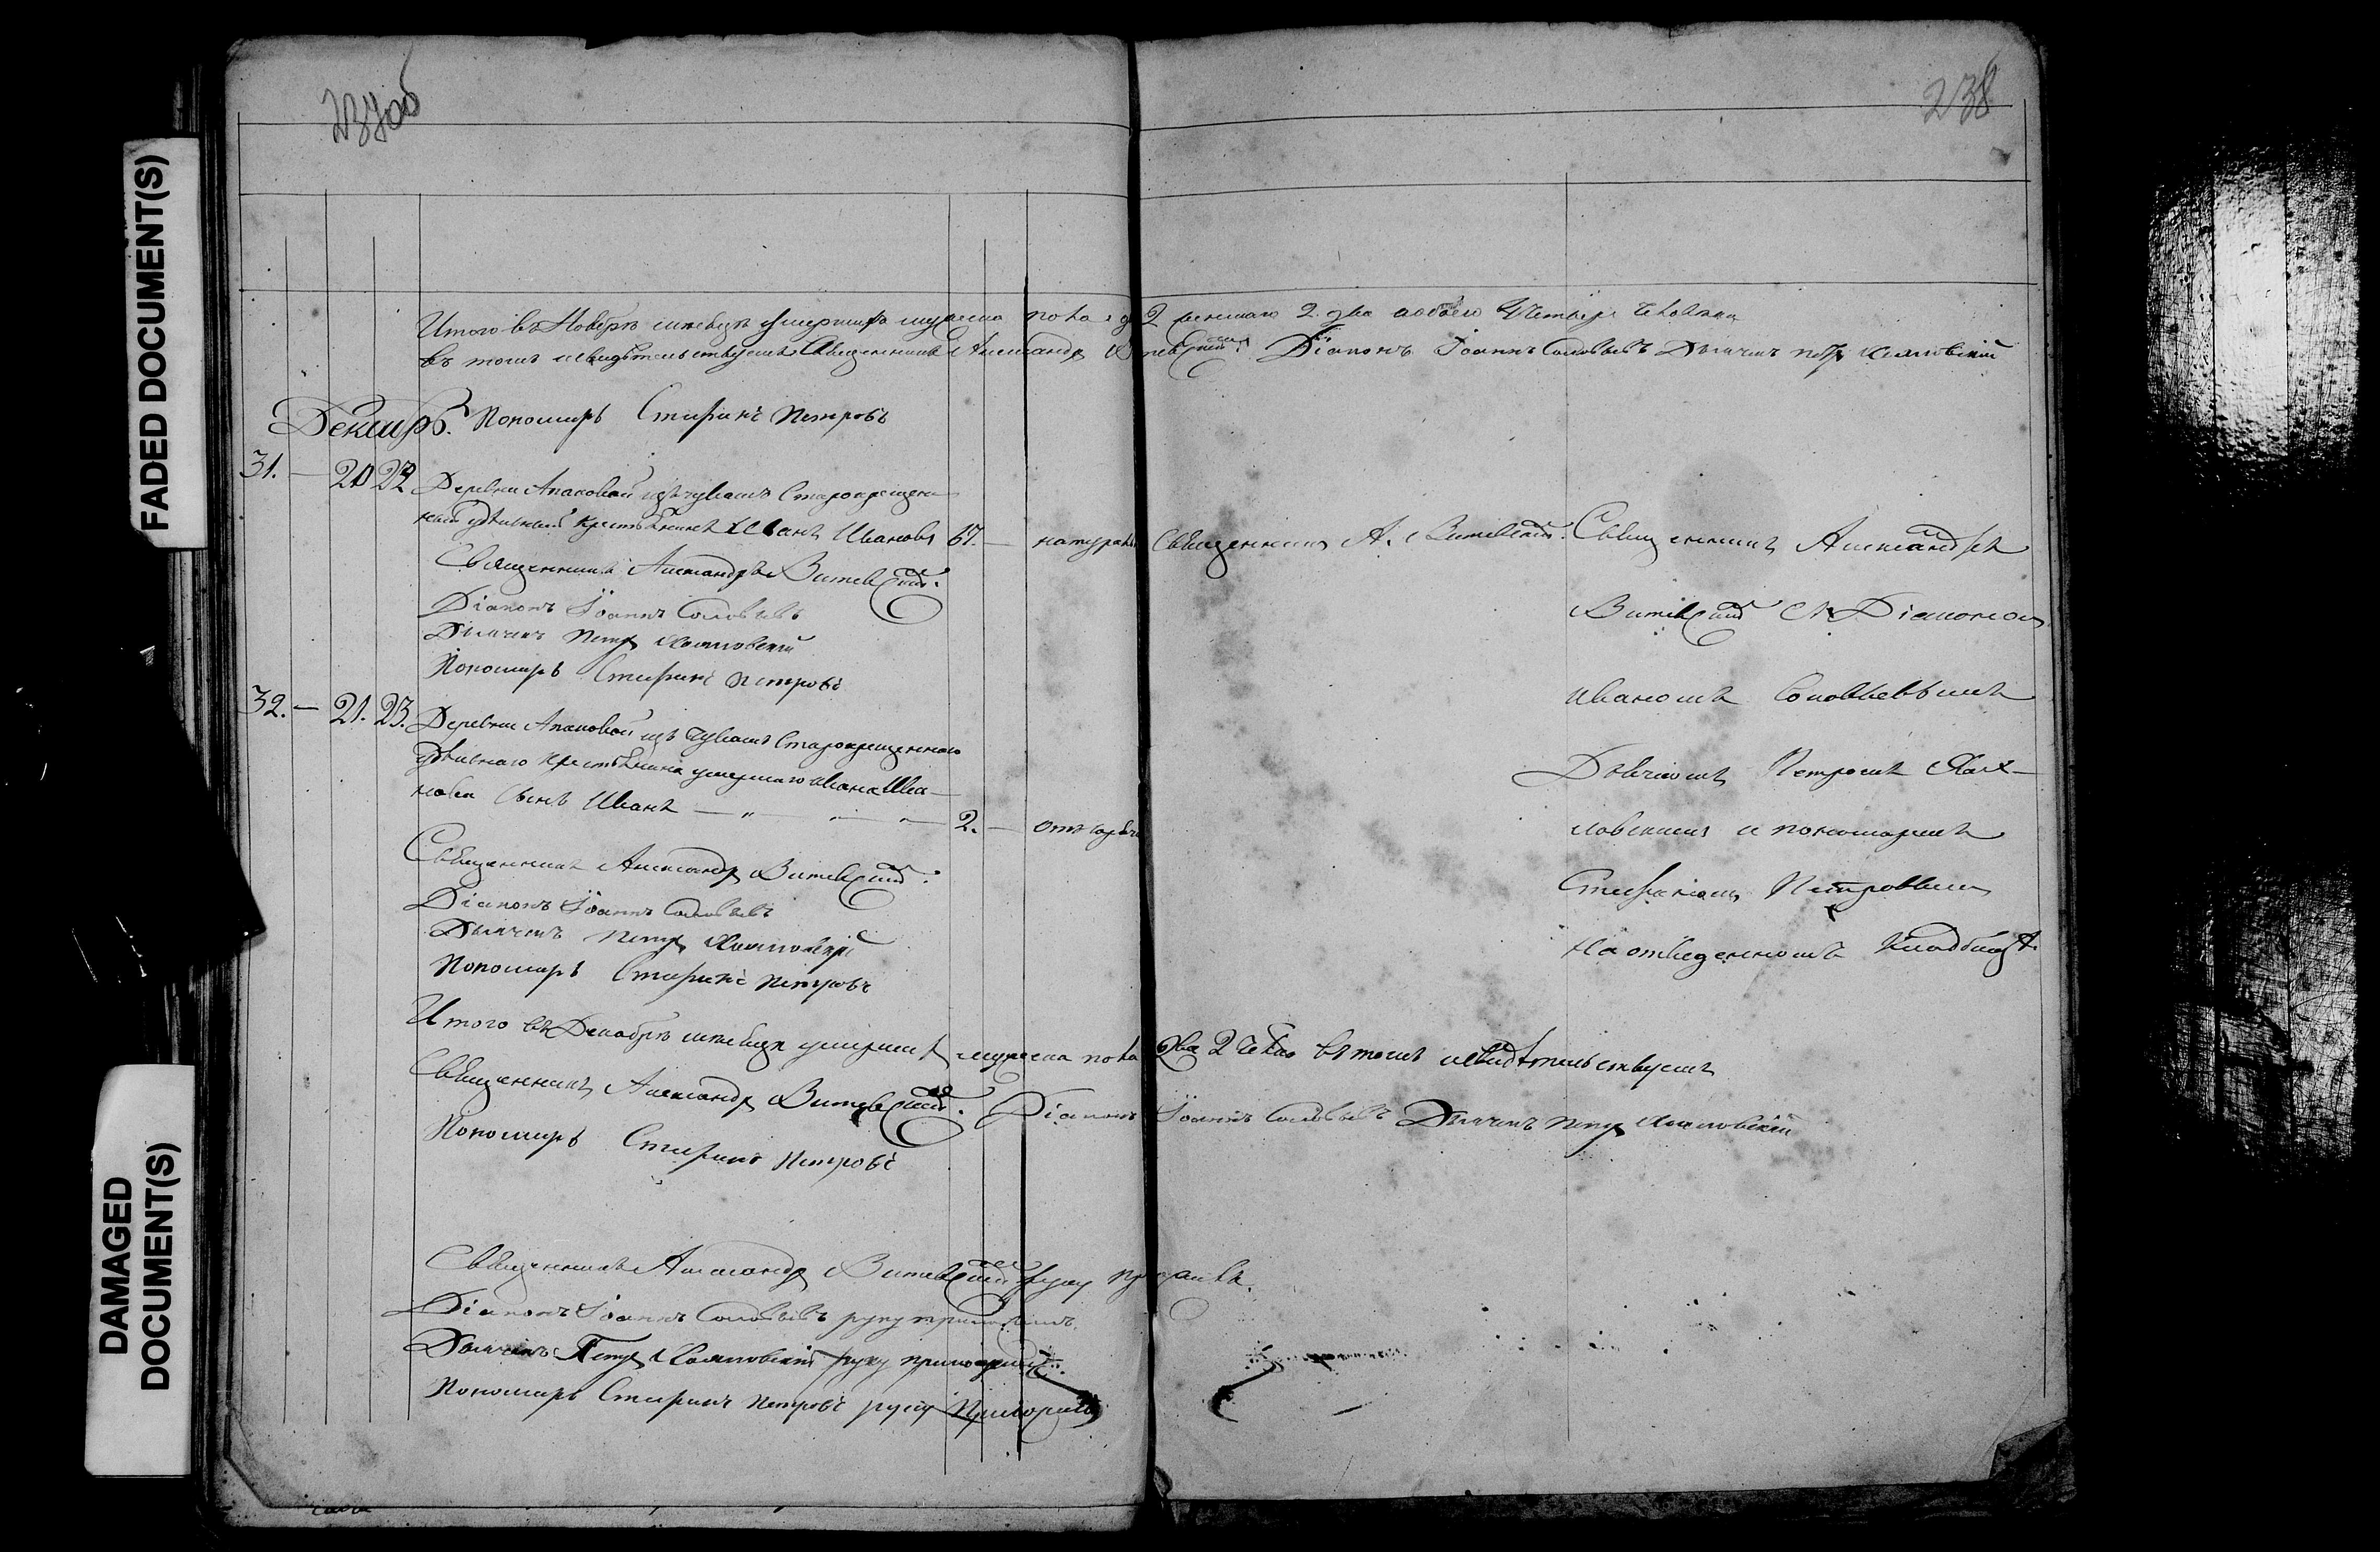 FADED DOCUMENT(S)
DAMAGED
DOCUMENT(S)
237об
238
Итого въ Ноябрѣ месяцѣ умерших мужеска пола 2 женскаго 2 два обоего Четыре человека
въ томъ свидѣтельствуемъ Священникъ Александръ Витевский. Діаконъ Іоаннъ Соловьевъ Дьячекъ Петръ
Пономарь Стефанъ Петровъ
Декабрь.
31. — 20 22 Деревни Апаковой изъ чувашъ Старокрещен
ный удѣльный крестьянинъ Иванъ Ивановъ 67. — натурально Священникъ А. Витевский. Священникъ Александръ
Священникъ Александръ Витевский.
Діаконъ Іоаннъ Соловьевъ
Дьячекъ Петръ
Пономарь Стефанъ Петровъ
Витевский съ Діакономъ
Иваномъ Соловьевымъ
Дьячкомъ Петромъ
и пономаремъ
Стефаномъ Петровымъ
на отведенномъ Кладбищѣ.
32. — 21. 23. Деревни Апаковой изъ Чувашъ Старокрещеннаго
удѣльнаго крестьянина умершаго Ивана Ива—
нова сынъ Иванъ — 2. —
Священникъ Александръ Витевский.
Діаконъ Іоаннъ Соловьевъ
Дьячекъ Петръ
Пономарь Стефанъ Петровъ
Итого въ Декабрѣ месяцѣ умершихъ мужеска пола два 2 въ томъ свидѣтельствуемъ
Священникъ Александръ Витевский. Діаконъ Іоаннъ Соловьевъ Дьячекъ Петръ
Пономарь Стефанъ Петровъ
Священникъ Александръ Витевский руку приложилъ.
Діаконъ Іоаннъ Соловьевъ руку приложилъ.
Дьячекъ Петръ руку приложилъ.
Пономарь Стефанъ Петровъ руку Приложилъ